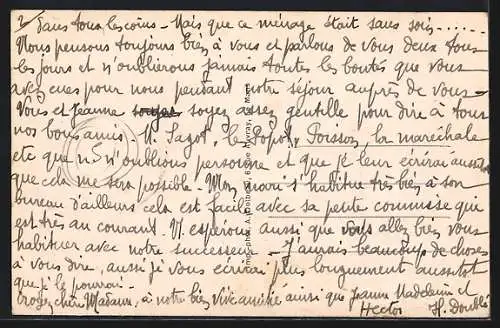 2/ dans tous les coins – Mais que ce ménage était sans soin.......
Nous pensons toujours bien à vous et parlons de vous deux tous
les jours et n'oublierons jamais toutes les boutés que vous
avez eues pour nous pendant notre séjour auprès de vous –
Vous et Jeanne soyez assez gentille pour dire à tous
nos bons amis. M. Sagot, le Popot, Poisson, la maréchale
etc que n/ n'oublions personne et que je leur écrirai aussitôt
que cela me sera possible – Mon mari s'habitue très bien à son
bureau d'ailleurs cela est facile avec sa petite commise qui
est très au courant. N. espérons aussi que vous allez bien vous
habituer avec notre successeur – J'aurais beaucoup de choses
à vous dire, aussi je vous écrirai plus longuement aussitôt
que je le pourrai –
Croyez chère Madame, à notre bien vive amitié ainsi que Jeanne Madeleine et
Hector H. Doublé